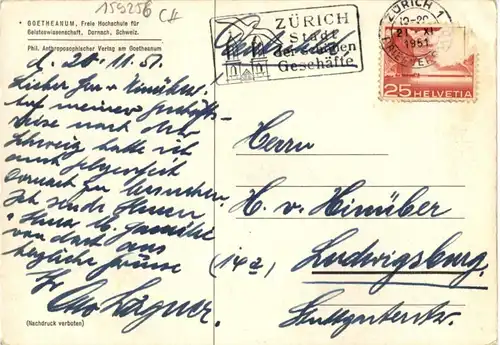 159256 CH
GOETHEANUM, Freie Hochschule für
Geisteswissenschaft, Dornach, Schweiz.
Phil. Anthroposophischer Verlag am Goetheanum
ZÜRICH
Stadt
der guten
Geschäfte
ZÜRICH 1
21. XI.
1951
25 HELVETIA
d. 20.11.51.
Lieber Herr v. Hinüber!
Auf meiner Geschäfts-
reise nach der
Schweiz hatte ich
auch Gelegenheit
Dornach zu besuchen.
Ich sende Ihnen
u. Ihrer Familie
von dort aus
herzliche Grüsse
Ihr
Otto Lagner
(Nachdruck verboten)
Herrn
H. v. Hinüber
(14a) Ludwigsburg
Stuttgarterstr.